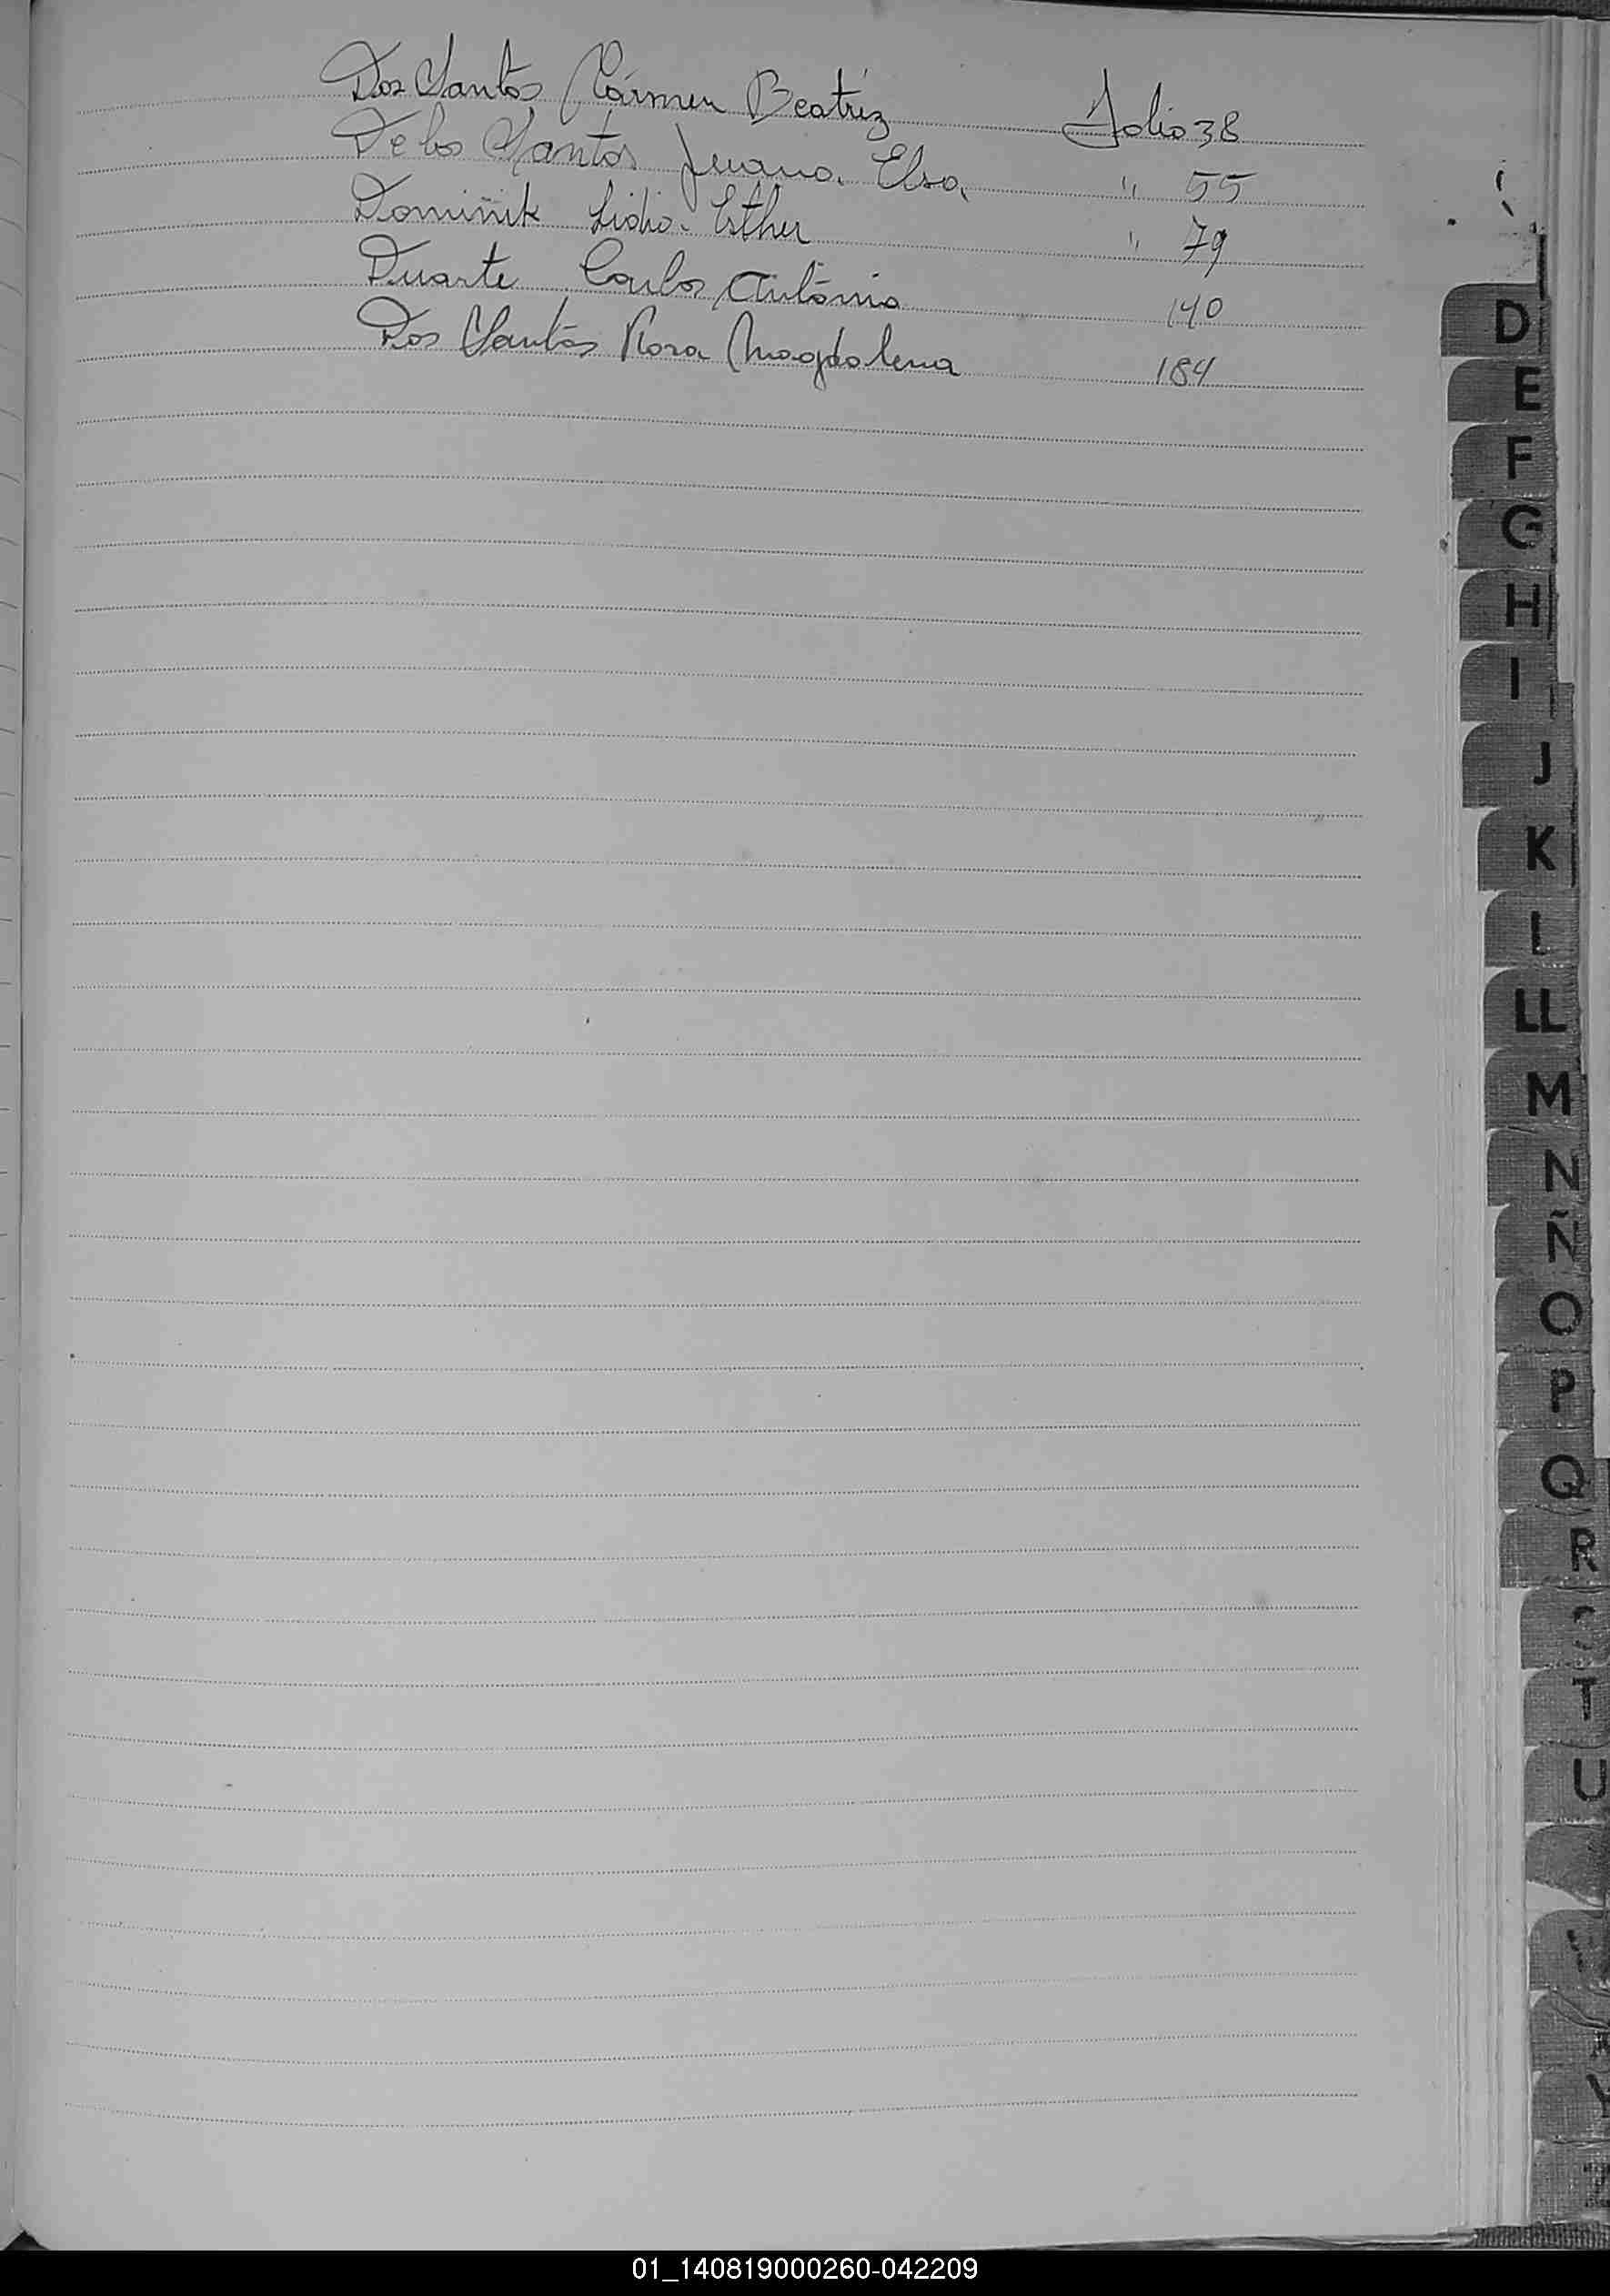 Dos Santos Cármen Beatríz Folio 38
De los Santos Juana Elsa " 55
Dominik Lidia Esther " 79
Duarte Carlos Antonio 140
Dos Santos Rosa Magdalena 184
D
E
F
G
H
I
J
K
L
LL
M
N
Ñ
O
P
Q
R
T
U
Y
01_140819000260-042209